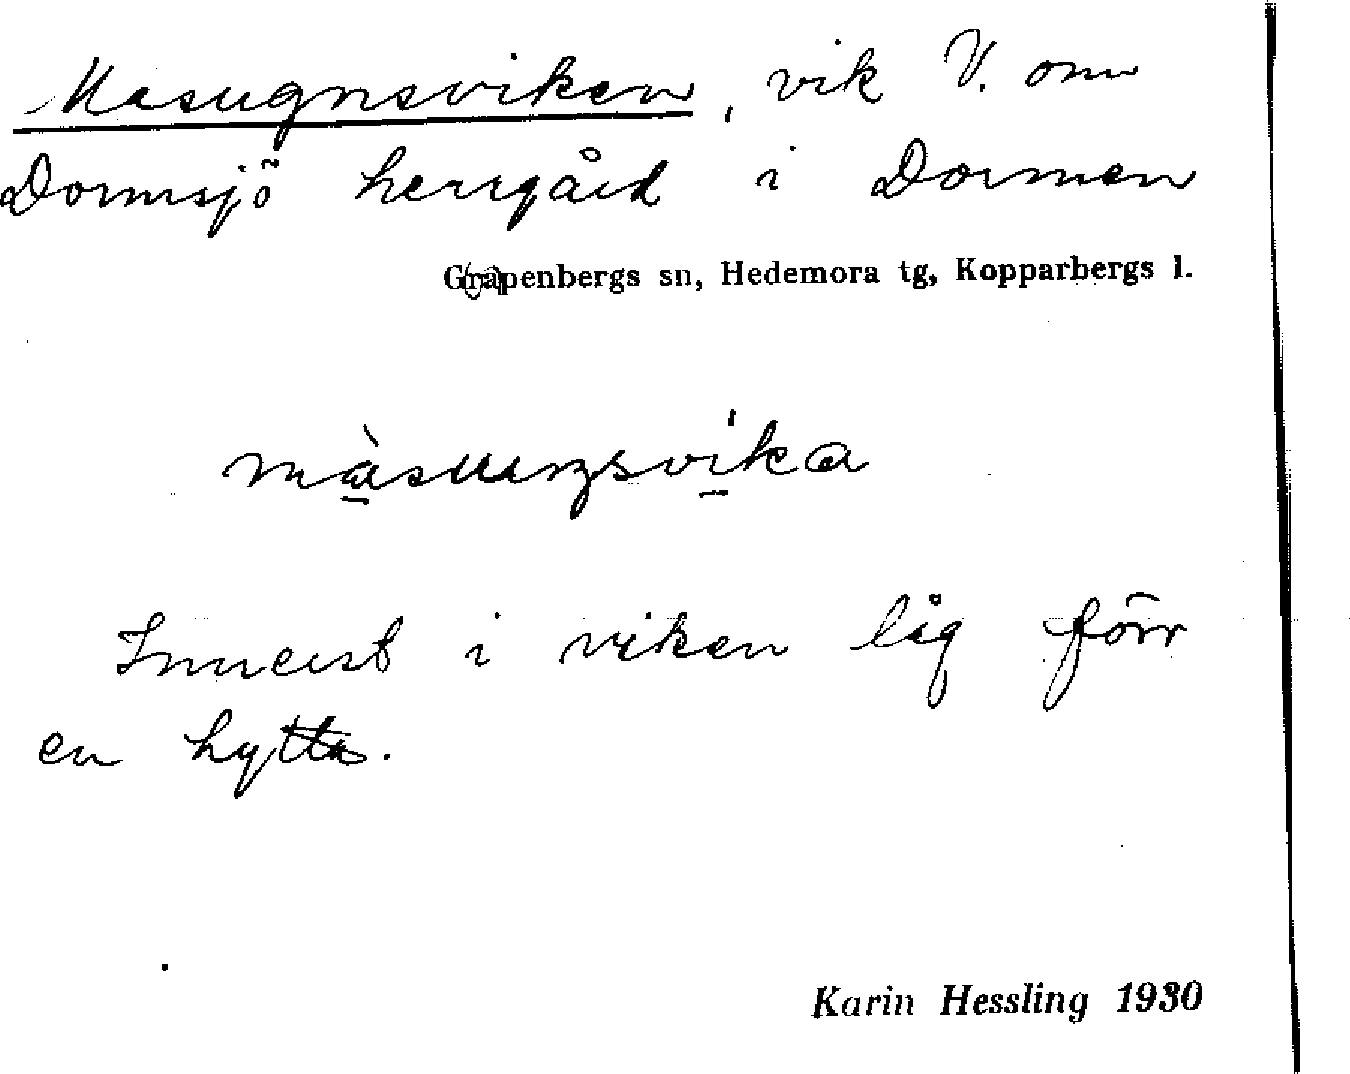 Masugnsviken, vik V. om
Dormsjö herrgård i Dormen
Grapenbergs sn, Hedemora tg, Kopparbergs l.
màsuŋsvika
Innerst i viken låg förr
en hytta.
Karin Hessling 1930